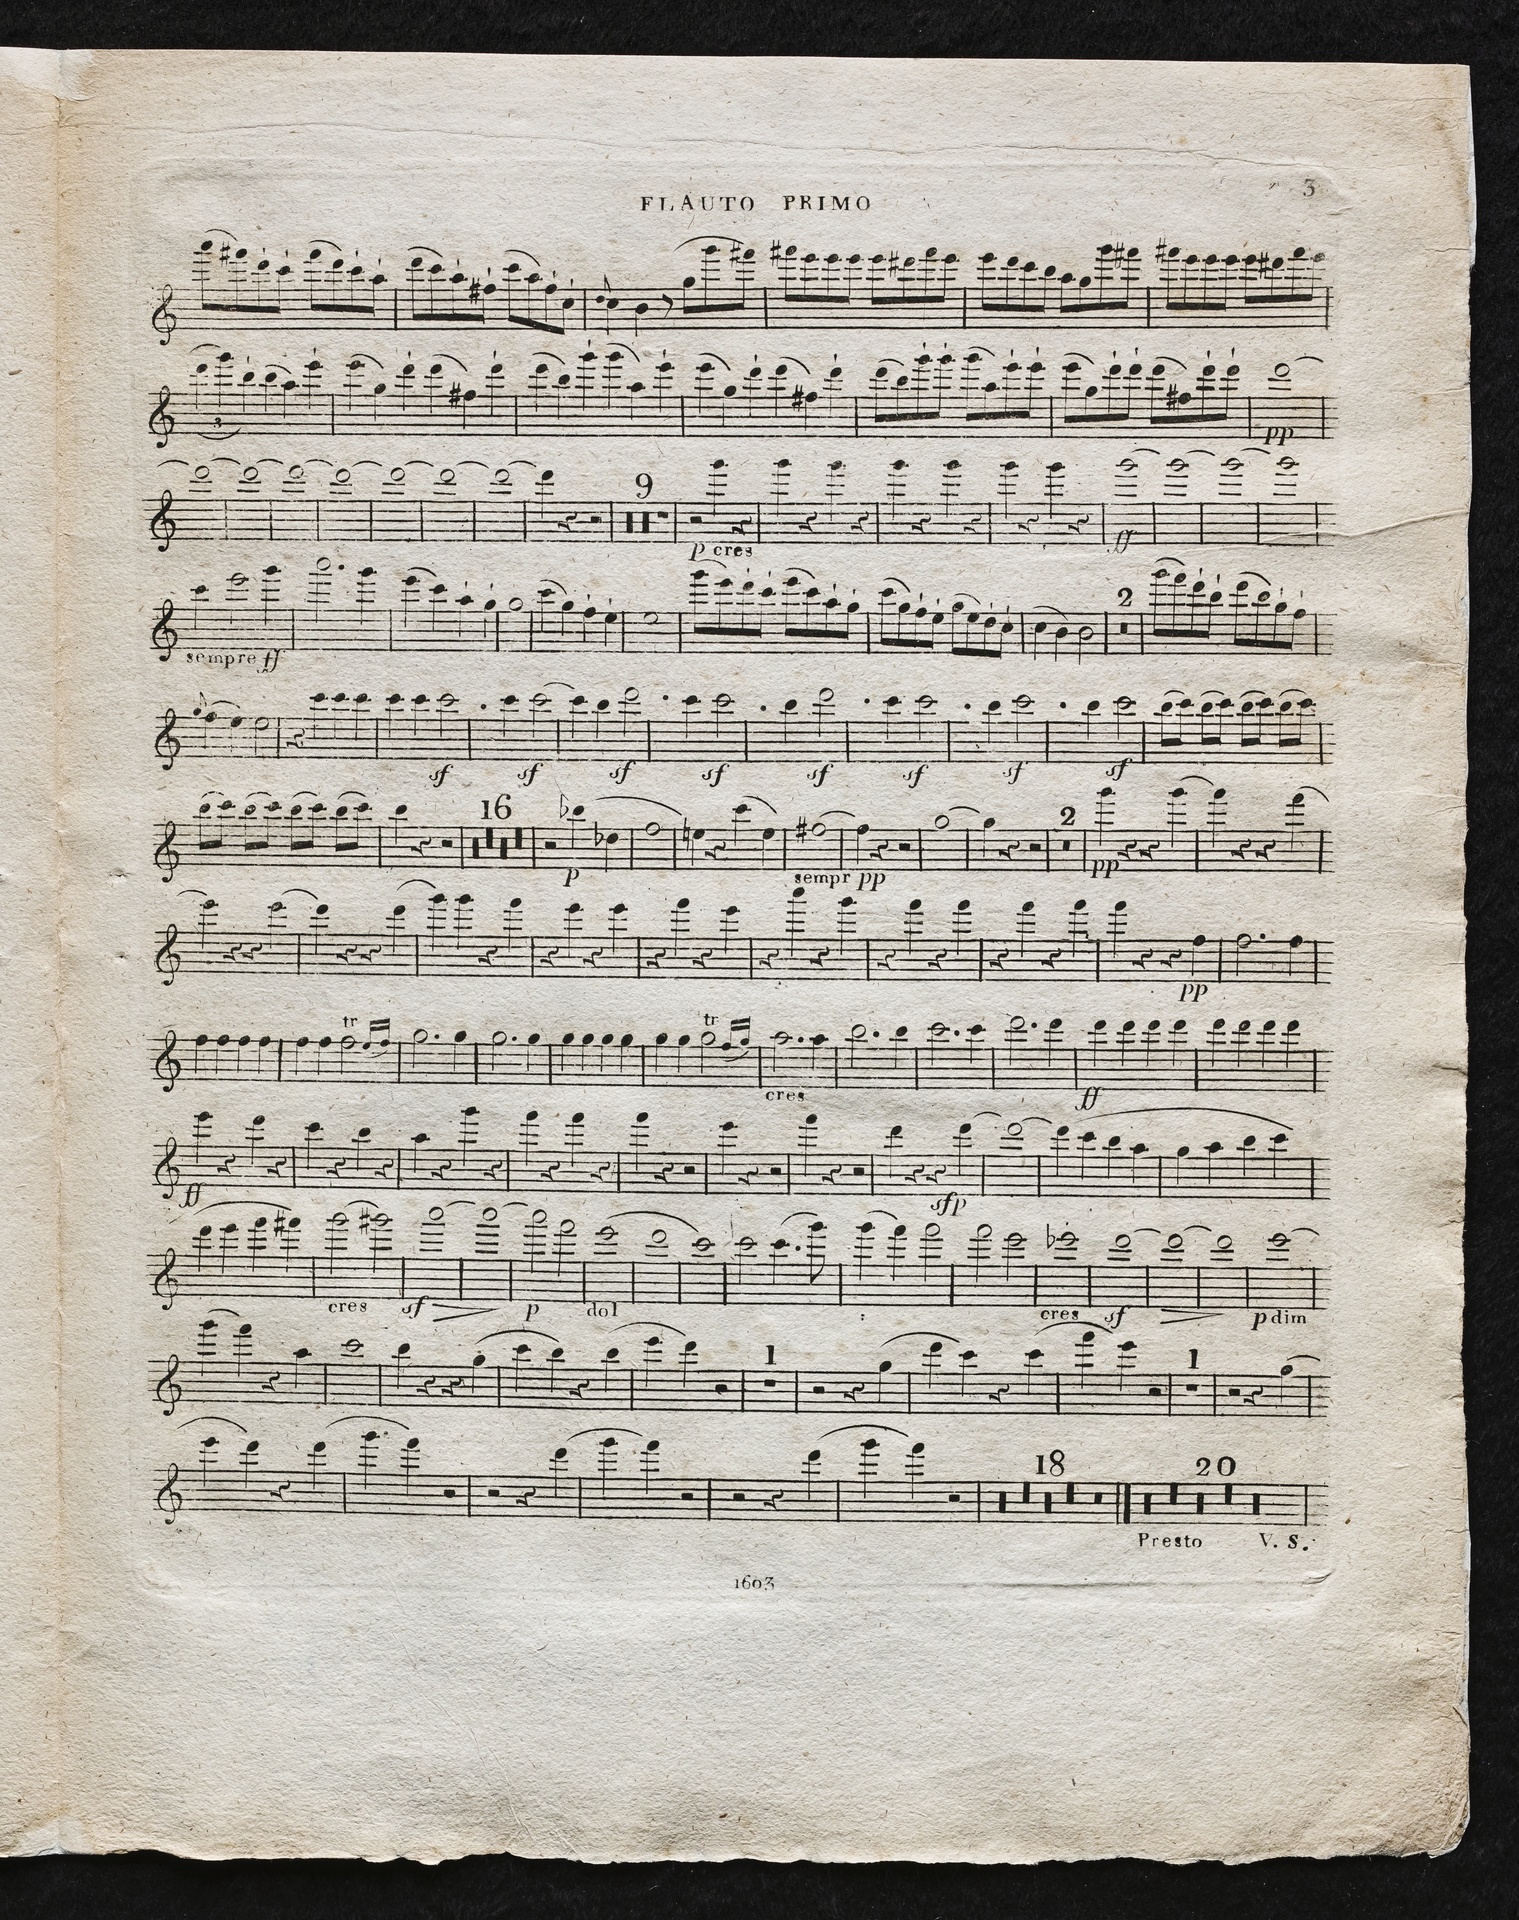 3
FLAUTO PRIMO
3
pp
9
p cres
ff
2
sempre ff
sf sf sf sf sf sf sf sf
16 2
p sempr pp pp
pp
tr tr
cres ff
ff sfp
cres sf p dol cres sf p dim
1 1
18 20
Presto V. S.
1603